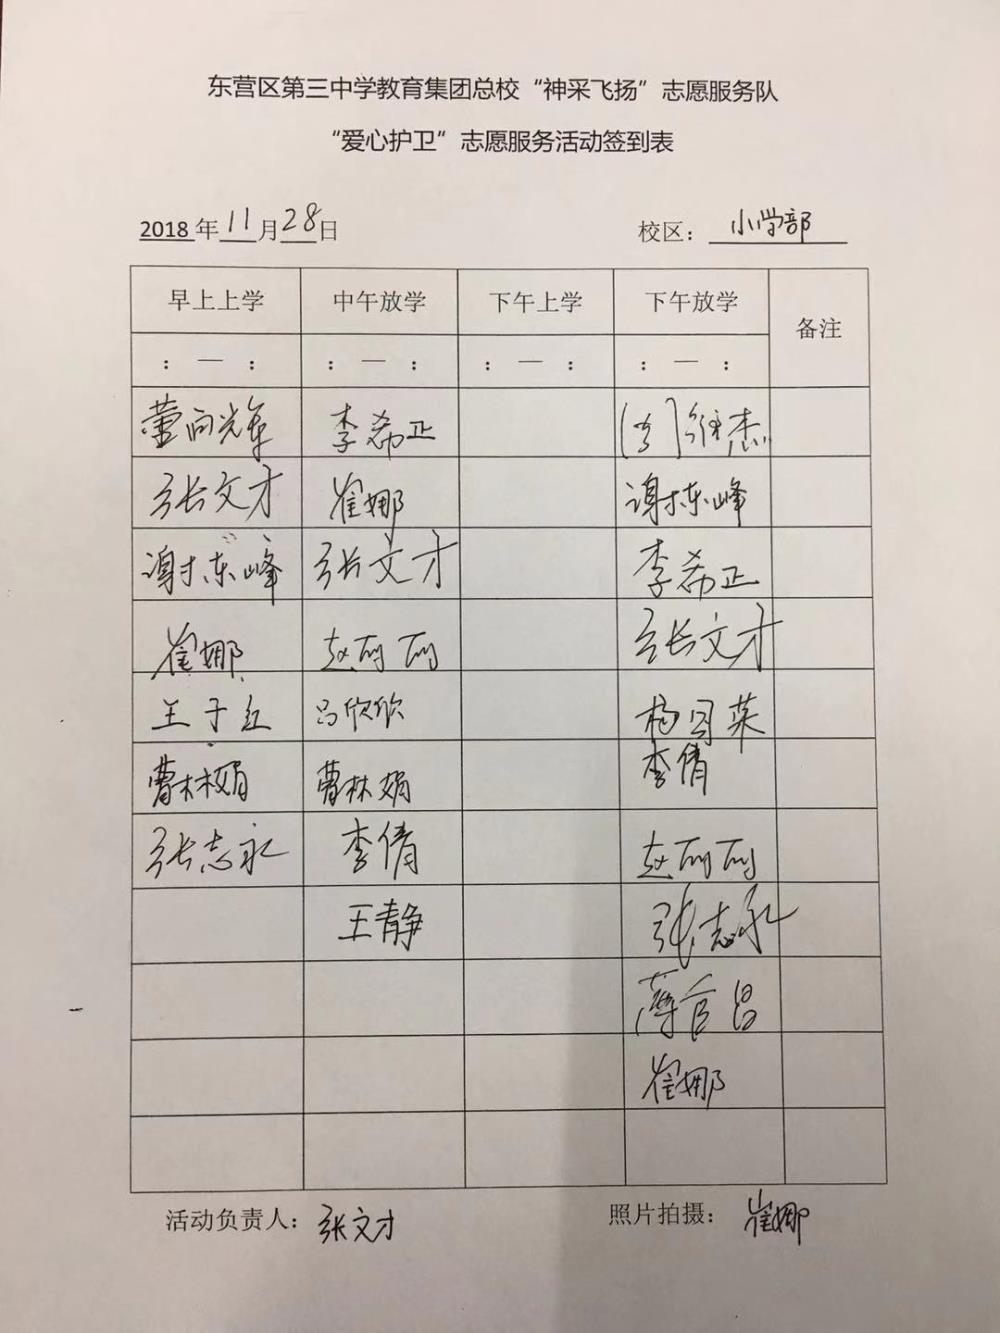 东营区第三中学教育集团总校“神采飞扬”志愿服务队
“爱心护卫”志愿服务活动签到表
2018年11月28日 校区：小学部
早上上学 中午放学 下午上学 下午放学 备注
：—： ：—： ：—： ：—：
李希正
张文才 崔娜 谢栋峰
谢栋峰 张文才 李希正
崔娜 赵丽丽 张文才
王子红 吕欣欣
曹林娟 曹林娟 李倩
张志永 李倩 赵丽丽
王静 张志永
崔娜
活动负责人：张文才 照片拍摄：崔娜